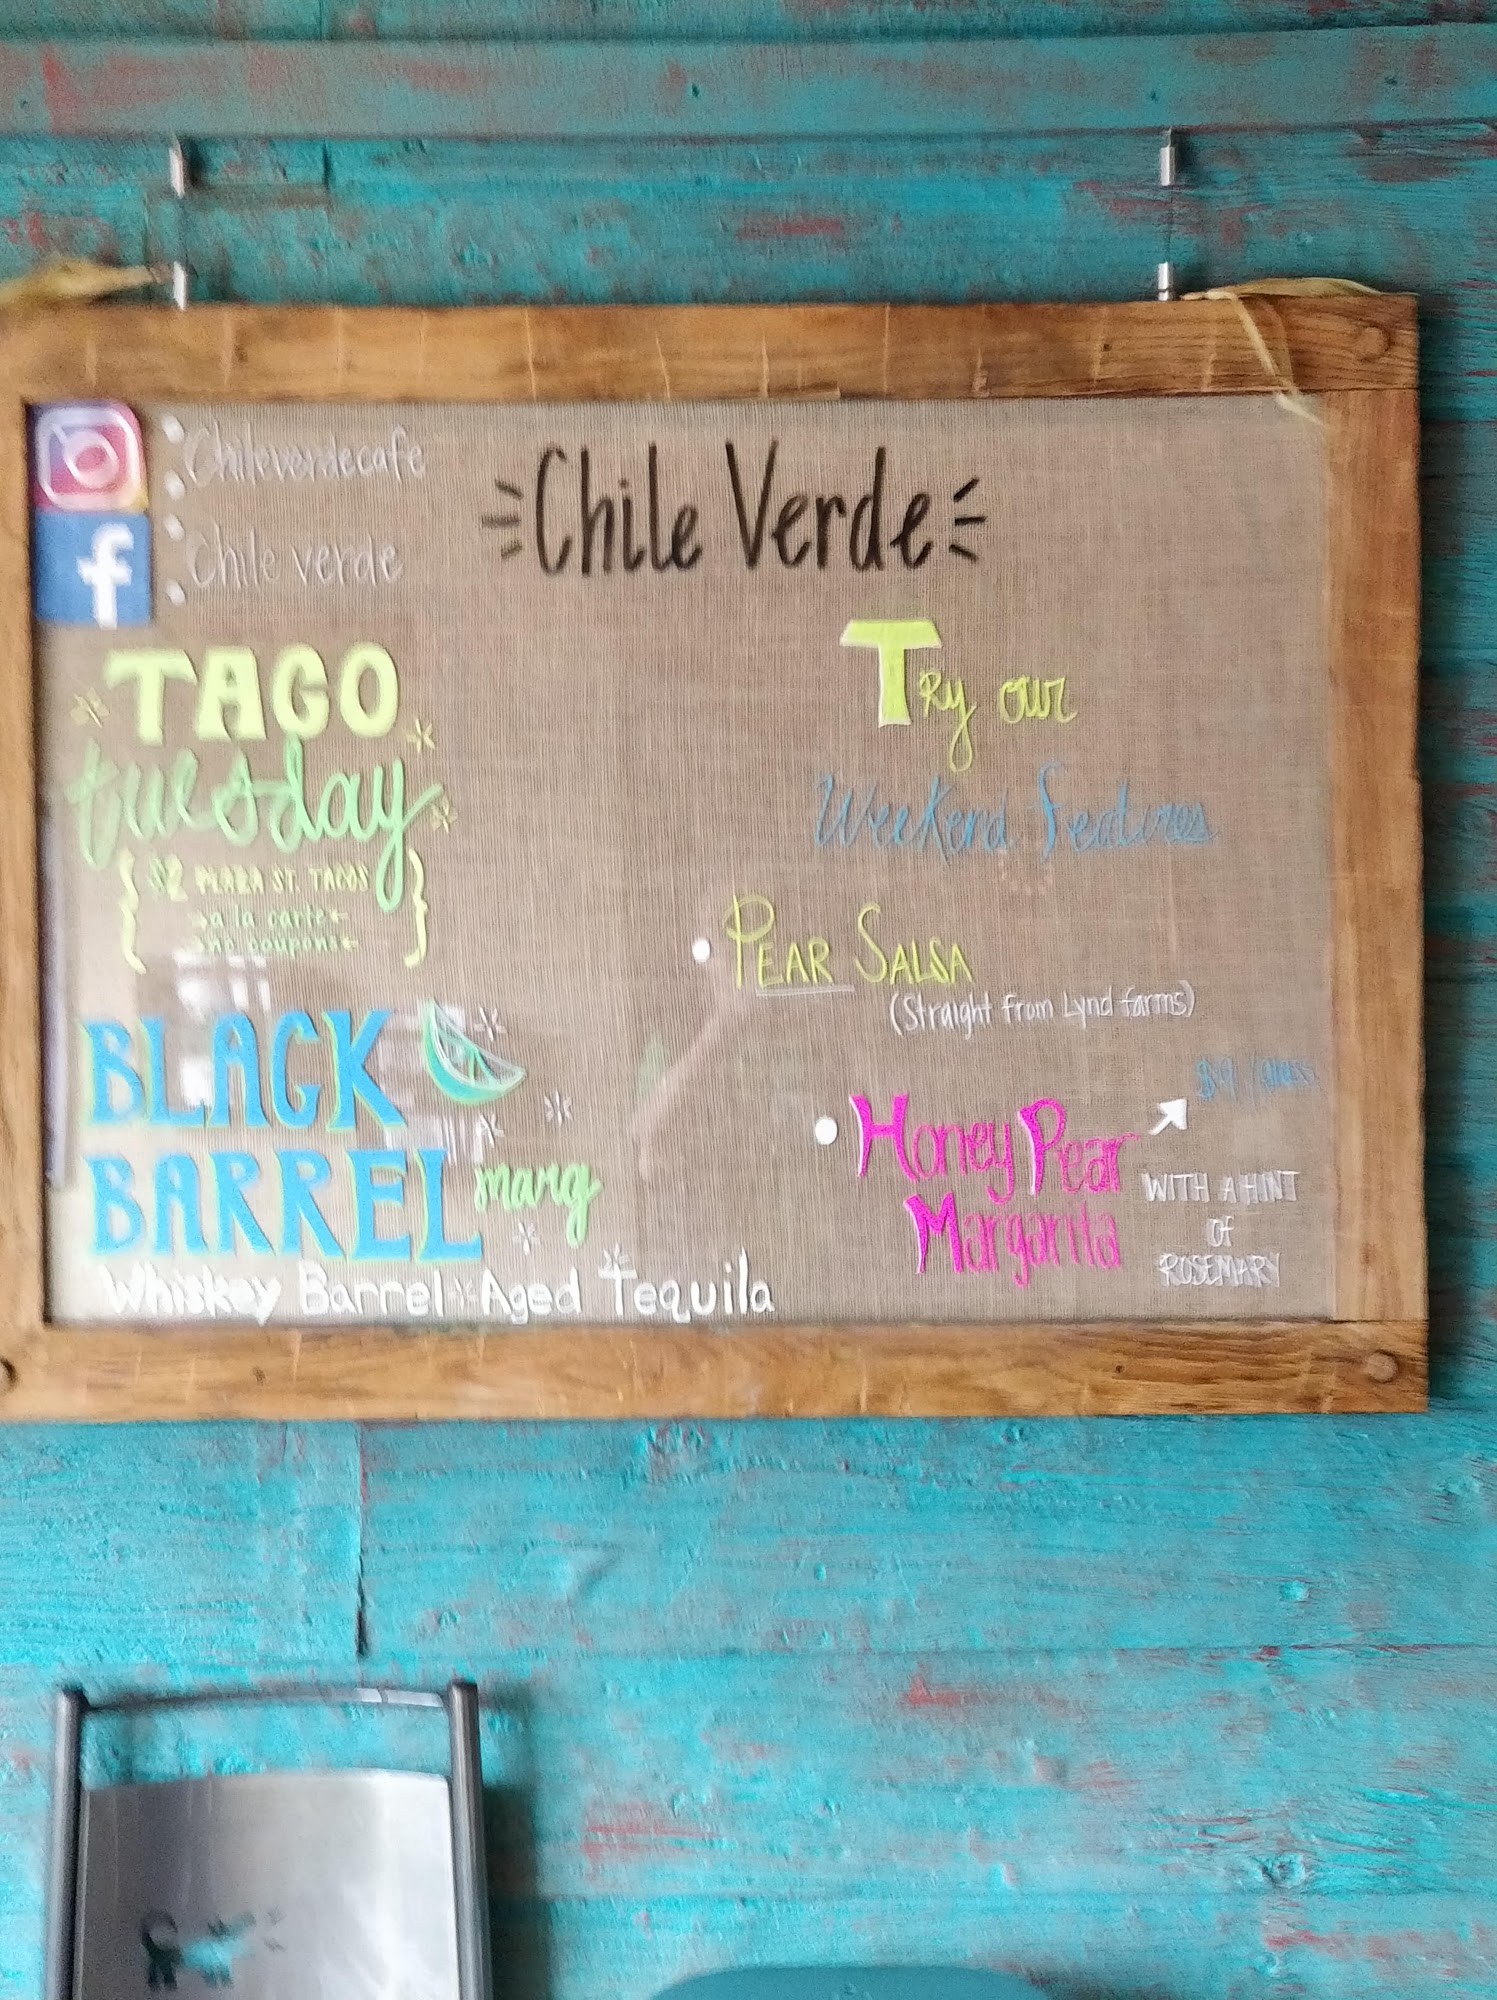 Chileverdecafe
Chile verde
Chile Verde
TACO
tuesday
$2 PLAZA ST. TACOS
a la carte
no coupons
BLACK
BARREL marg
Whiskey Barrel Aged Tequila
Try our
Weekend features
PEAR SALSA
(Straight from Lynd farms)
$9/glass
Honey Pear
Margarita
WITH A HINT
OF
ROSEMARY